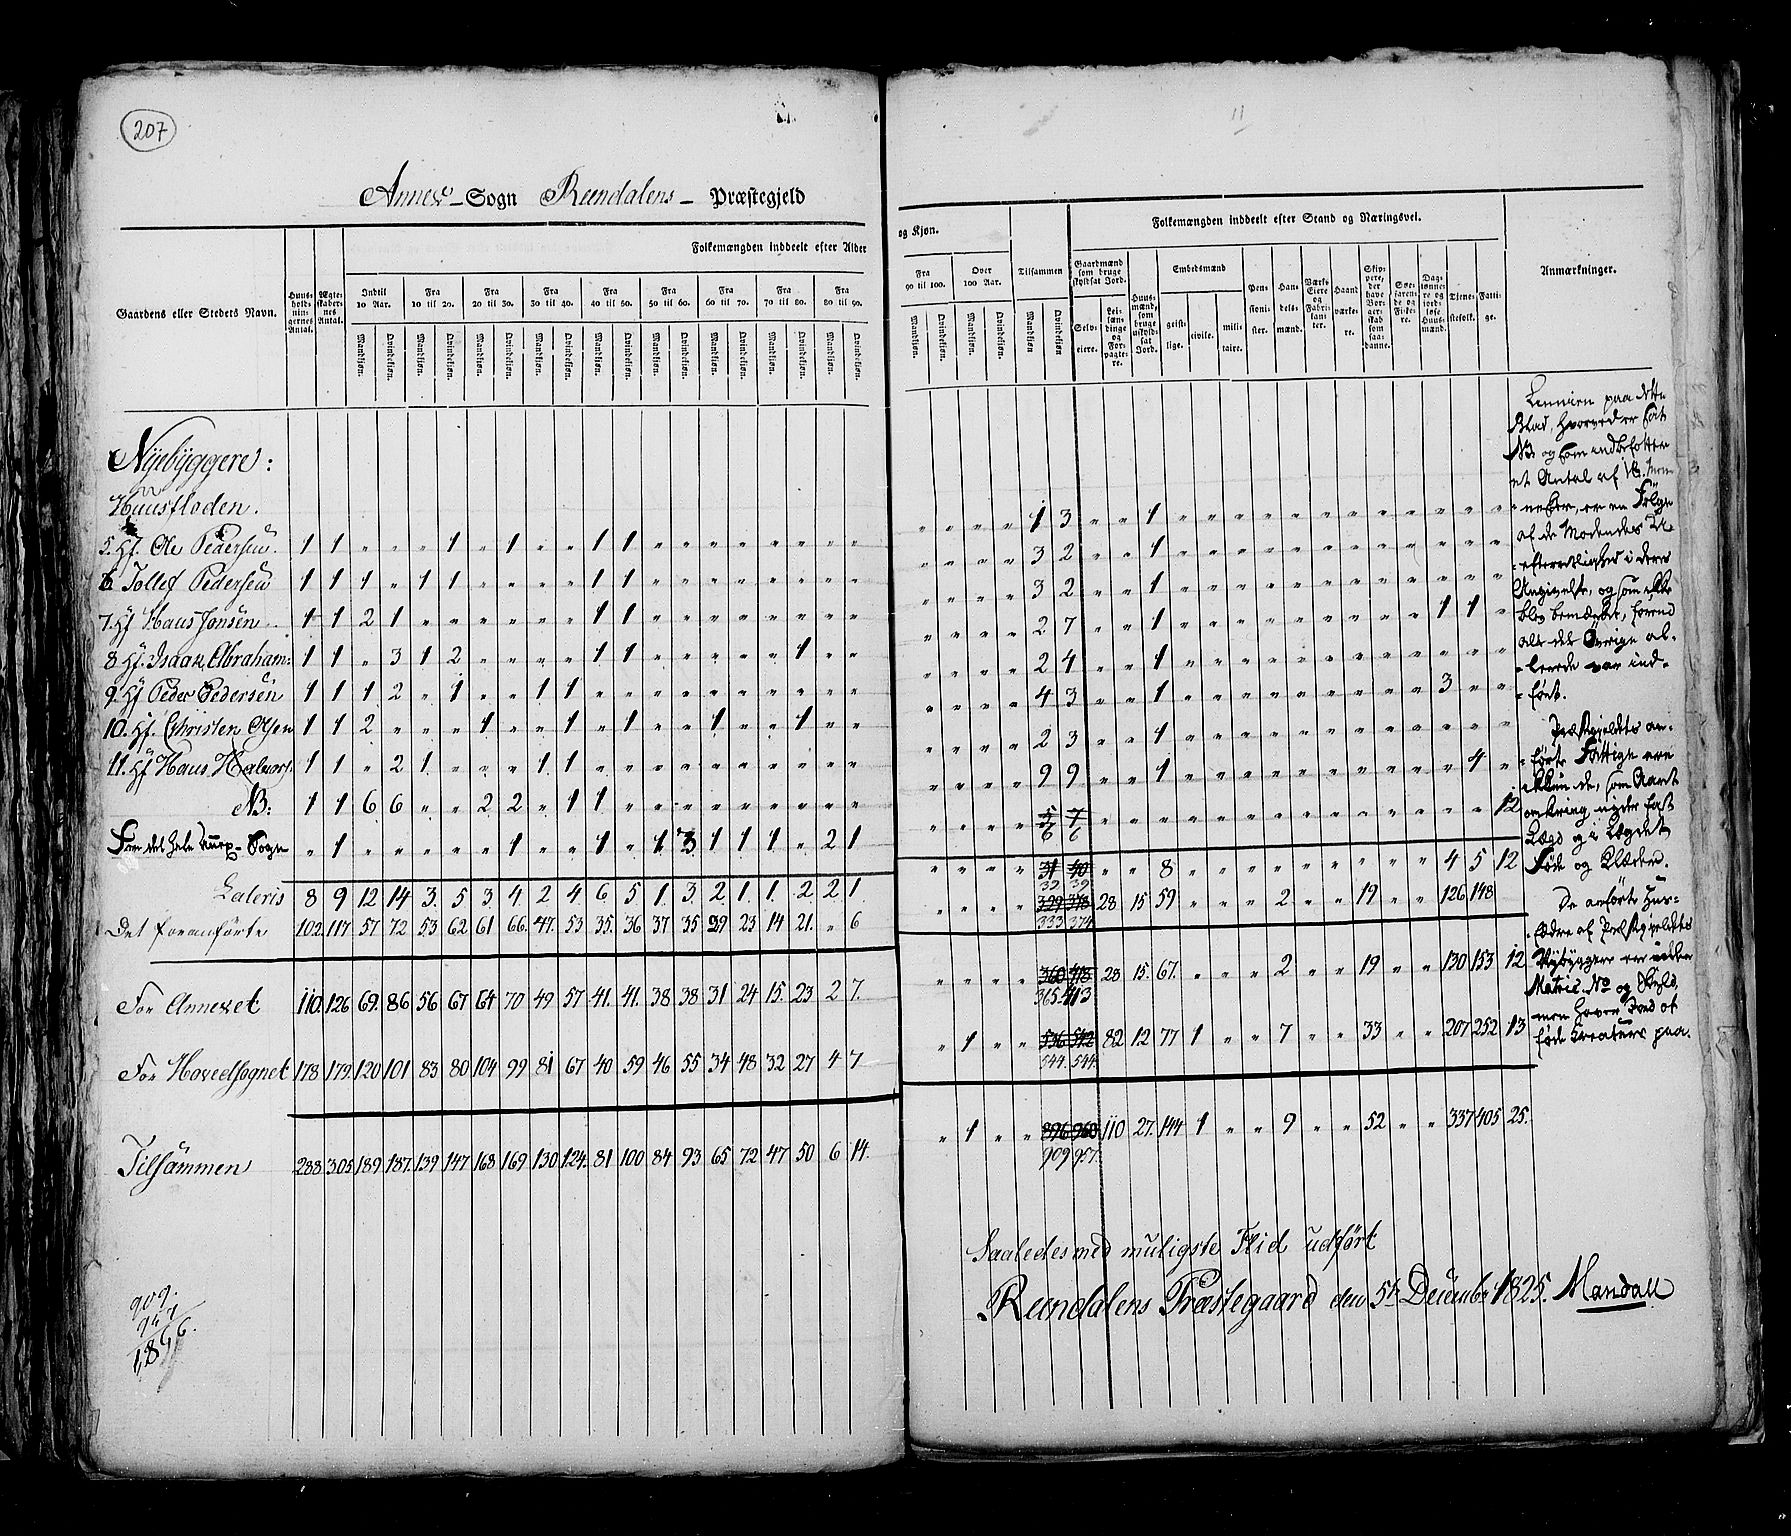 207
11
Annex-Sogn Ranndalens- Præstegjeld
Folkemængden inddeelt efter Alder
og Kjøn.
Folkemængden inddeelt efter Stand og Næringsvei.
Gaardens eller Stedets Navn.
Huus-holdningernes Antal.
Ægteskabernes Antal.
Indtil 10 Aar.
Fra 10 til 20.
Fra 20 til 30.
Fra 30 til 40.
Fra 40 til 50.
Fra 50 til 60.
Fra 60 til 70.
Fra 70 til 80.
Fra 80 til 90.
Fra 90 til 100.
Over 100 Aar.
Tilsammen
Mandkjøn. Qvindekjøn.
Gaardmænd som bruge skyldsat Jord.
Selveiere.
Leilændinge og Forpagtere.
Huusmænd, som bruge uskyldsat Jord.
Embedsmænd
geistlige.
civile.
militaire.
Pensionister.
Handelsmænd.
Værks Eiere og Fabrikanter.
Haandværkere.
Skippere, der have Borgerskab som saadanne.
Søefarende og Fiskere.
Daglønnere og jordløse Huusmænd.
Tjenestefolk.
Fattige.
Anmærkninger.
Nyebyggere:
Huusfloden.
5. Hf. Ole Pedersen. 1 1 „ „ „ 1 „ 1 „ „ 1 1 „ „ „ „ „ „ „ „ „ „ „ 1 3 „ „ 1
6 Tollef Pedersen 1 1 1 „ 1 1 „ „ „ „ 1 1 „ „ „ „ „ „ „ „ „ „ „ 3 2 „ „ 1
7. Hf Hans Jonsen. 1 1 2 1 „ „ „ „ „ „ 1 1 „ „ „ „ „ „ „ „ „ „ „ 3 2 „ „ 1
8 Hf. Isaak Abraham: 1 1 „ 3 1 2 „ „ „ „ 1 1 „ „ „ „ „ 1 „ „ „ „ „ „ 2 7 „ „ 1 1 1
9. Hf Peder Pedersen 1 1 1 2 „ 1 „ „ 1 1 „ „ „ „ „ „ „ „ „ „ „ „ 2 4 „ „ 1
10. Hf. Christen Olsen 1 1 2 „ „ „ 1 „ „ 1 „ 1 „ „ 1 „ „ 1 „ „ „ „ „ „ 4 3 „ „ 1 3
11. Hf Hans Halvors. 1 1 „ 2 1 „ „ „ 1 1 „ „ „ „ „ „ „ „ „ „ „ „ „ 2 3 „ „ 1
NB: 1 1 6 6 „ „ 2 2 „ 1 1 „ „ „ „ „ „ „ „ „ „ „ „ „ 9 9 „ „ 1 4
For det hele Annex-Sogn „ 1 „ „ „ „ „ 1 „ „ 1 „ 1 3 1 1 1 „ 2 1 „ „ „ „ 5 7 6 6 12
Lateris 8 9 12 14 3. 5 3 4. 2 4. 6 5 1. 3. 2 1. 1. 2 2 1. „ „ „ „ 31 40 32 39 „ „ 8 4 5 12
Det foranførte 102. 117 57 72 53 62 61 66. 47. 53 35. 36 37 35 29 23 14 21. „ 6 „ „ „ „ 329 378 333 374 28 15 59 2 19 126 148
For Annexet 110. 126 69. 86 56 67 64 70 49 57 41. 41. 38 38 31 24 15. 23 2 7. „ „ „ „ 360 418 365. 413 28 15 67. 2 19 130 153 12
For Hovedsognet 178 179. 120 101 83 80 104 99 81 67 40 59 46 55 34 48 32 27 4 7 „ 1 „ „ 536 542 544. 544. 82 12 77 1 7 33 207 252 13
Tilsammen 288 305 189. 187. 139 147 168 169 130 124. 81 100 84 93 65 72 47 50 6 14. „ 1 „ „ 896 960 909 957. 110 27. 144 1 9 52 337 405 25.
Linnien paa dette
Blad, hvorved er sat
NB og som indbefatter
et Antal af 18 Men
nesker, er en Følge
af de Modendes U
efterretlighed i deres
Angivelse, og som ikke
blev bemærket, førend
alt det Øvrige al-
lerede var ind-
ført.
Præstegjeldets an-
førte Fattige ere
ikkun de, som Aaret
omkring nyder fast
Lægd og i Lægdet
Føde og Klæder.
De anførte Hus-
fædre af Præstegjeldets
Nybyggere ere uden
Matric. No og Skyld,
men haver Jord at
føde Kreature paa.
Saaledes med muligste Flid udført
Ranndalens Præstegaard den 5te December 1825. Mandall
909.
957
1,866.